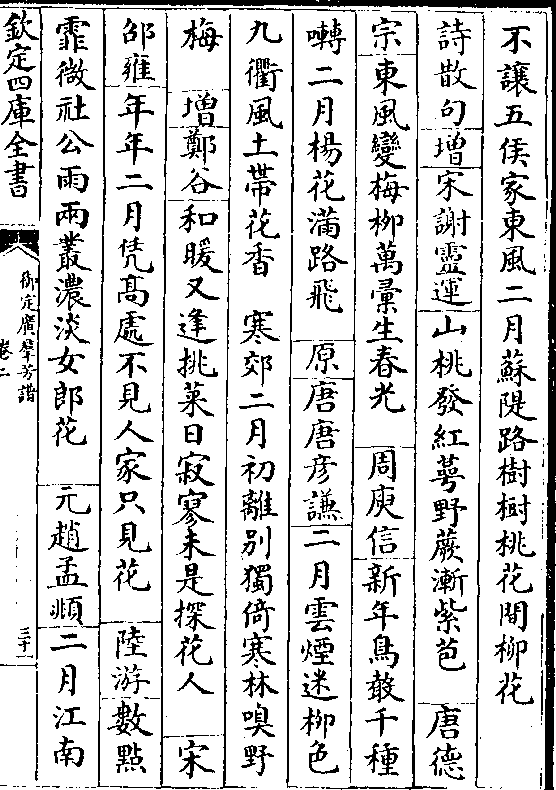 不讓五侯家東風二月蘇隄路樹樹桃花間柳花
詩散句增宋謝靈運山桃發紅萼野蕨漸紫苞　唐德
宗東風變梅柳萬彙生春光　周庾信新年鳥聲千種
囀二月楊花滿路飛　原唐唐彦謙二月雲煙迷柳色
九衢風土帶花香　寒郊二月初離别獨倚寒林嗅野
梅　增鄭谷和暖又逢挑菜日寂寥未是探花人　宋
邵雍年年二月凭髙處不見人家只見花　陸游數點
霏微社公雨兩叢濃淡女郎花　元趙孟頫二月江南
欽定四庫全書
御定廣羣芳譜
卷二
三十一